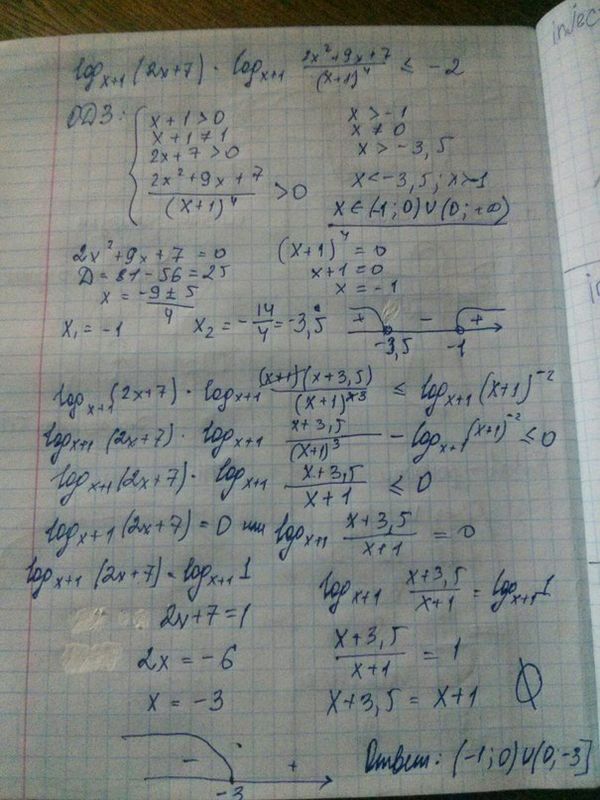 log_{x+1} (2x+7) · log_{x+1} \frac{2x²+9x+7}{(x+1)^4} ≤ -2
ОДЗ: { x+1>0
x+1≠1
2x+7>0
\frac{2x²+9x+7}{(x+1)^4} >0
x>-1
x≠0
x>-3,5
x<-3,5; x>-1
x∈(-1;0)∪(0;+∞)
2x²+9x+7=0
D=81-56=25
x=\frac{-9±5}{4}
x₁=-1 x₂=-\frac{14}{4}=-3,5
(x+1)^4=0
x+1=0
x=-1
+ - +
-3,5 -1
log_{x+1} (2x+7) · log_{x+1} \frac{(x+1)(x+3,5)}{(x+1)^3} ≤ log_{x+1} (x+1)^{-2}
log_{x+1} (2x+7) · log_{x+1} \frac{x+3,5}{(x+1)^3} - log_{x+1} (x+1)^{-2} ≤0
log_{x+1} (2x+7) · log_{x+1} \frac{x+3,5}{x+1} ≤ 0
log_{x+1} (2x+7)=0 или log_{x+1} \frac{x+3,5}{x+1} = 0
log_{x+1} (2x+7)=log_{x+1} 1
2x+7=1
2x=-6
x=-3
log_{x+1} \frac{x+3,5}{x+1} = log_{x+1} 1
\frac{x+3,5}{x+1} = 1
x+3,5=x+1 ∅
- +
-3
Ответ: (-1;0)∪(0;-3]
injec